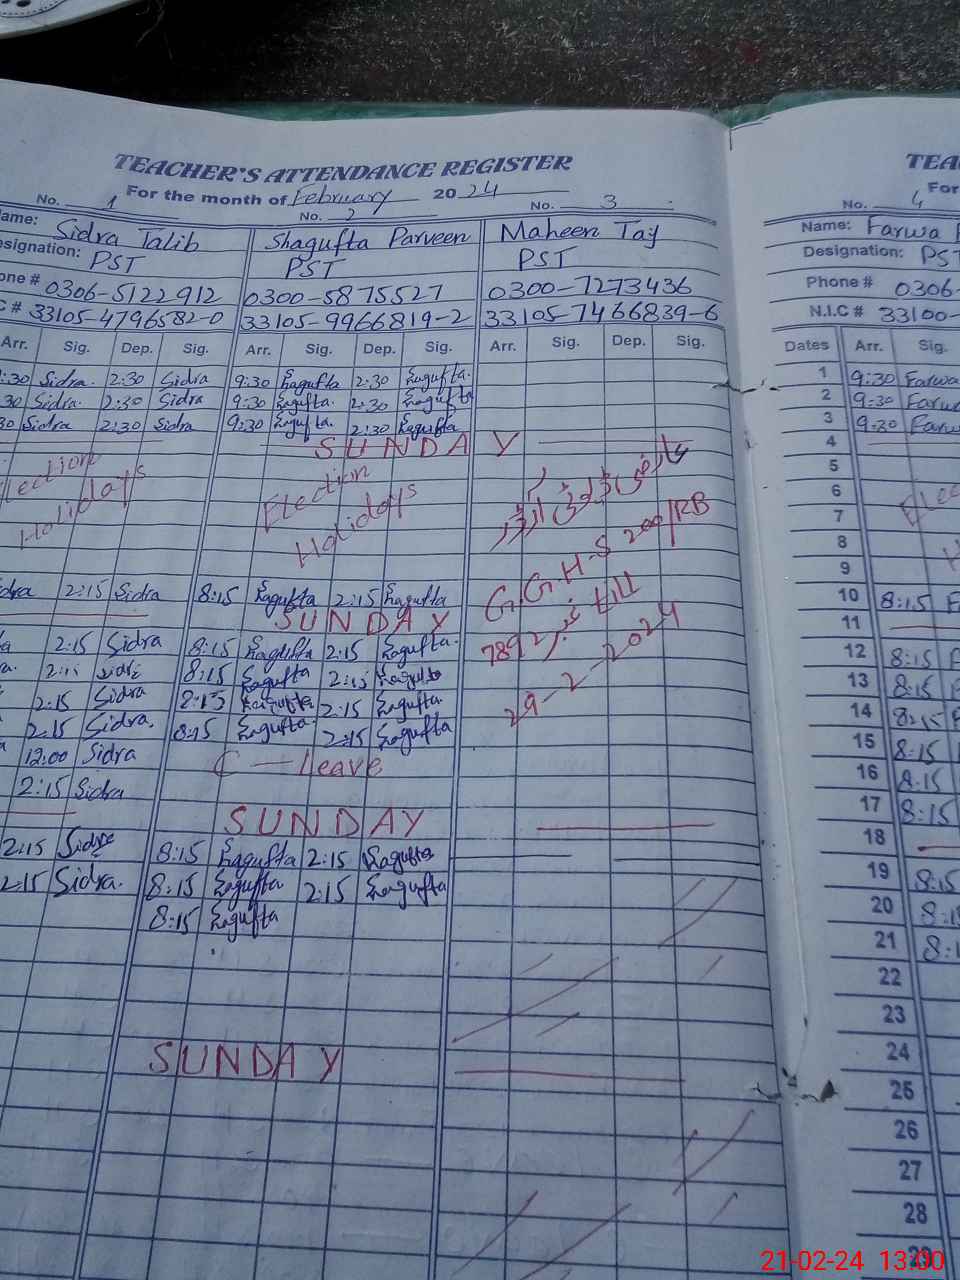 TEACHER'S ATTENDANCE REGISTER
For the month of February 2024
No. 1 No. 2 No. 3
Name: Sidra Talib Shagufta Parveen Maheen Taj
Designation: PST PST PST
Phone # 0306-5122912 0300-5875527 0300-7273436
33105-4796582-0 33105-9966819-2 33105-7466839-6
Arr. Sig. Dep. Sig. Arr. Sig. Dep. Sig. Arr. Sig. Dep. Sig.
9:30 Sidra. 2:30 Sidra 9:30 Shagufta 2:30 Shagufta.
:30 Sidra. 2:30 Sidra 9:30 Shagufta. 2:30 Shagufta
30 Sidra 2:30 Sidra 9:30 Shagufta. 2:30 Shagufta
SUNDAY
Election Holidays
Election Holidays
عارضی ڈیوٹی آرڈر
G.G.H.S 200/RB
نمبر 7892 till
29-2-2024
Sidra 2:15 Sidra 8:15 Shagufta 2:15 Shagufta
SUNDAY
2:15 Sidra 8:15 Shagufta 2:15 Shagufta.
2:15 Sidra 8:15 Shagufta 2:15 Shagufta
2:15 Sidra 8:15 Shagufta 2:15 Shagufta.
2:15 Sidra. 8:15 Shagufta. 2:15 Shagufta
12:00 Sidra C — leave
2:15 Sidra
SUNDAY
2:15 Sidra 8:15 Shagufta 2:15 Shagufta
2:15 Sidra. 8:15 Shagufta 2:15 Shagufta
8:15 Shagufta
SUNDAY
TEA
For
No. 4
Name: Farwa
Designation: PST
Phone # 0306-
N.I.C # 33100-
Dates Arr. Sig.
1 9:30 Farwa
2 9:30 Farwa
3 9:30 Farwa
4
5
6
7
8
9
10 8:15 F
11
12 8:15
13 8:15
14 8:15
15 8:15
16 8:15
17 8:15
18
19 8:15
20 8:15
21 8:1
22
23
24
25
26
27
28
29
21-02-24 13:00